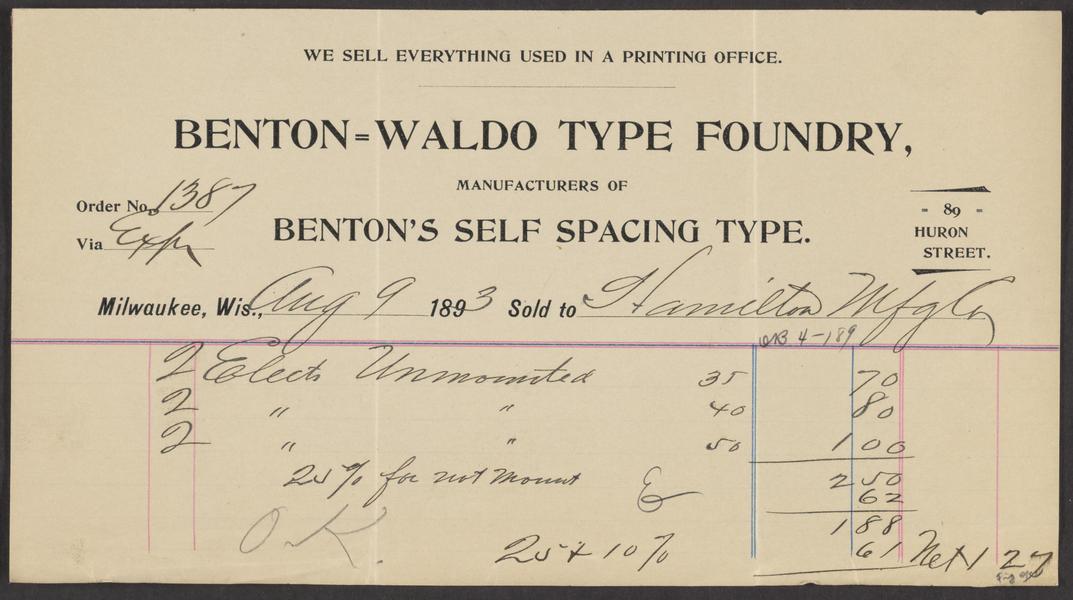 WE SELL EVERYTHING USED IN A PRINTING OFFICE.
BENTON=WALDO TYPE FOUNDRY,
MANUFACTURERS OF
BENTON'S SELF SPACING TYPE.
Order No. 1387
Via Exp
= 89 =
HURON
STREET.
Milwaukee, Wis., Aug 9 1893 Sold to Hamilton Mfg Co
4-189
2 Elects Unmounted 35 70
2 " " 40 80
2 " " 50 1 00
25% for not mount 2 50
62
O.K. 1 88
25 + 10% 61 Net 1 27